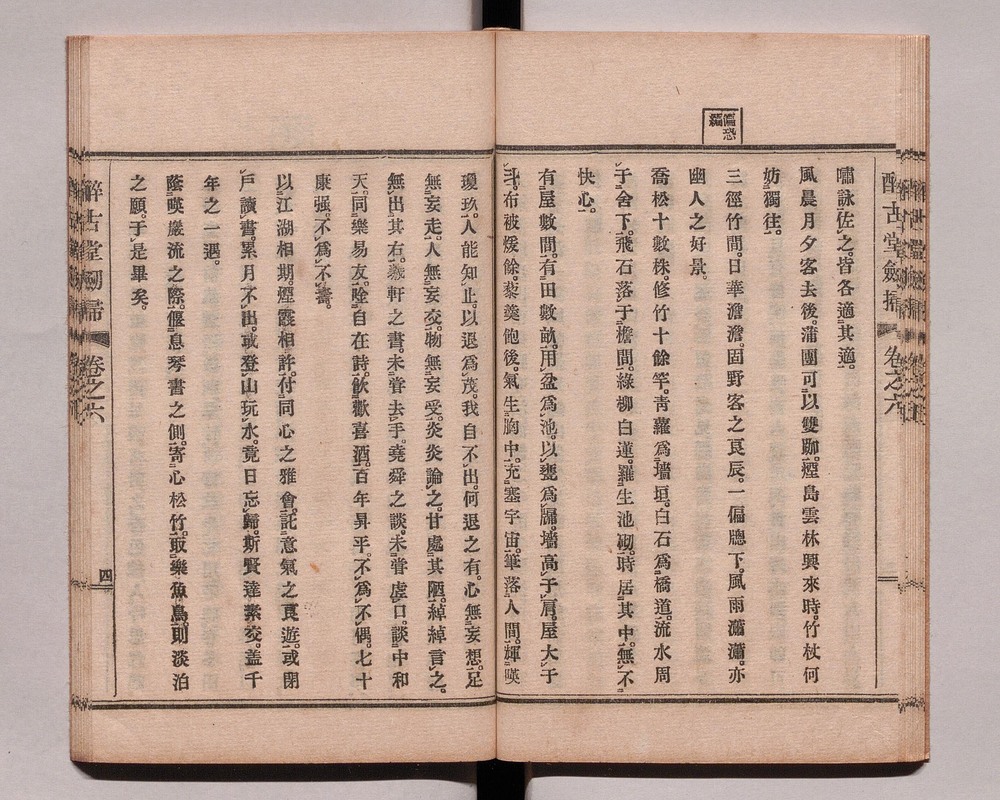 醉古堂劒掃 卷之六
偏恐
嘯詠佐之。皆各適其適。
風晨月夕客去後。蒲團可以雙跏。煙島雲林興來時。竹杖何
妨獨往。
三徑竹間。日華澹澹。固野客之良辰。一偏牕下。風雨瀟瀟。亦
幽人之好景。
喬松十數株。修竹十餘竿。靑蘿爲墻垣。白石爲橋道。流水周
于舍下。飛石落于檐間。綠柳白蓮。羅生池砌。時居其中。無不
快心。
有屋數間。有田數畝。用盆爲池。以甕爲牖。墻高于肩。屋大于
斗。布被煖餘。藜羹飽後。氣生胸中。充塞宇宙。筆落人間。輝暎
瓊玖。人能知止。以退爲茂。我自不出。何退之有。心無妄想。足
無妄走。人無妄交。物無妄受。炎炎論之。甘處其陋。綽綽言之。
無出其右。羲軒之書。未甞去手。堯舜之談。未甞虛口。談中和
天。同樂易友。唫自在詩。飮歡喜酒。百年昇平。不爲不偶。七十
康强。不爲不壽。
以江湖相期。煙霞相許。付同心之雅會。託意氣之良遊。或閉
戶讀書。累月不出。或登山玩水。竟日忘歸。斯賢達素交。盖千
年之一遇。
蔭暎巖流之際。偃息琴書之側。寄心松竹。取樂魚鳥。則淡泊
之願。于是畢矣。
醉古堂劒掃 卷之六
四